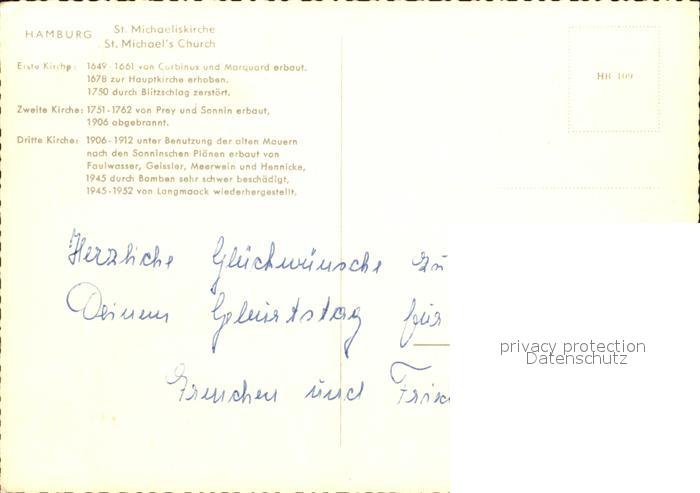 HAMBURG St. Michaeliskirche
St. Michael's Church
Erste Kirche: 1649-1661 von Corbinus und Marquard erbaut.
1678 zur Hauptkirche erhoben.
1750 durch Blitzschlag zerstört.
Zweite Kirche: 1751-1762 von Prey und Sonnin erbaut,
1906 abgebrannt.
Dritte Kirche: 1906-1912 unter Benutzung der alten Mauern
nach den Sonninschen Plänen erbaut von
Faulwasser, Geissler, Meerwein und Hennicke,
1945 durch Bomben sehr schwer beschädigt,
1945-1952 von Langmaack wiederhergestellt.
HB 109
Herzliche Glückwünsche zu
Deinem Geburtstag für
und
privacy protection
Datenschutz